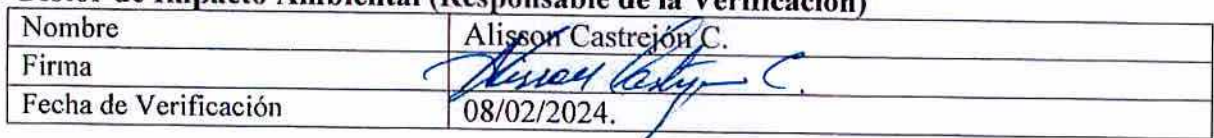 Gestor de Impacto Ambiental (Responsable de la Verificación)
Nombre Alisson Castrejón C.
Firma Alisson Castrejón C.
Fecha de Verificación 08/02/2024.